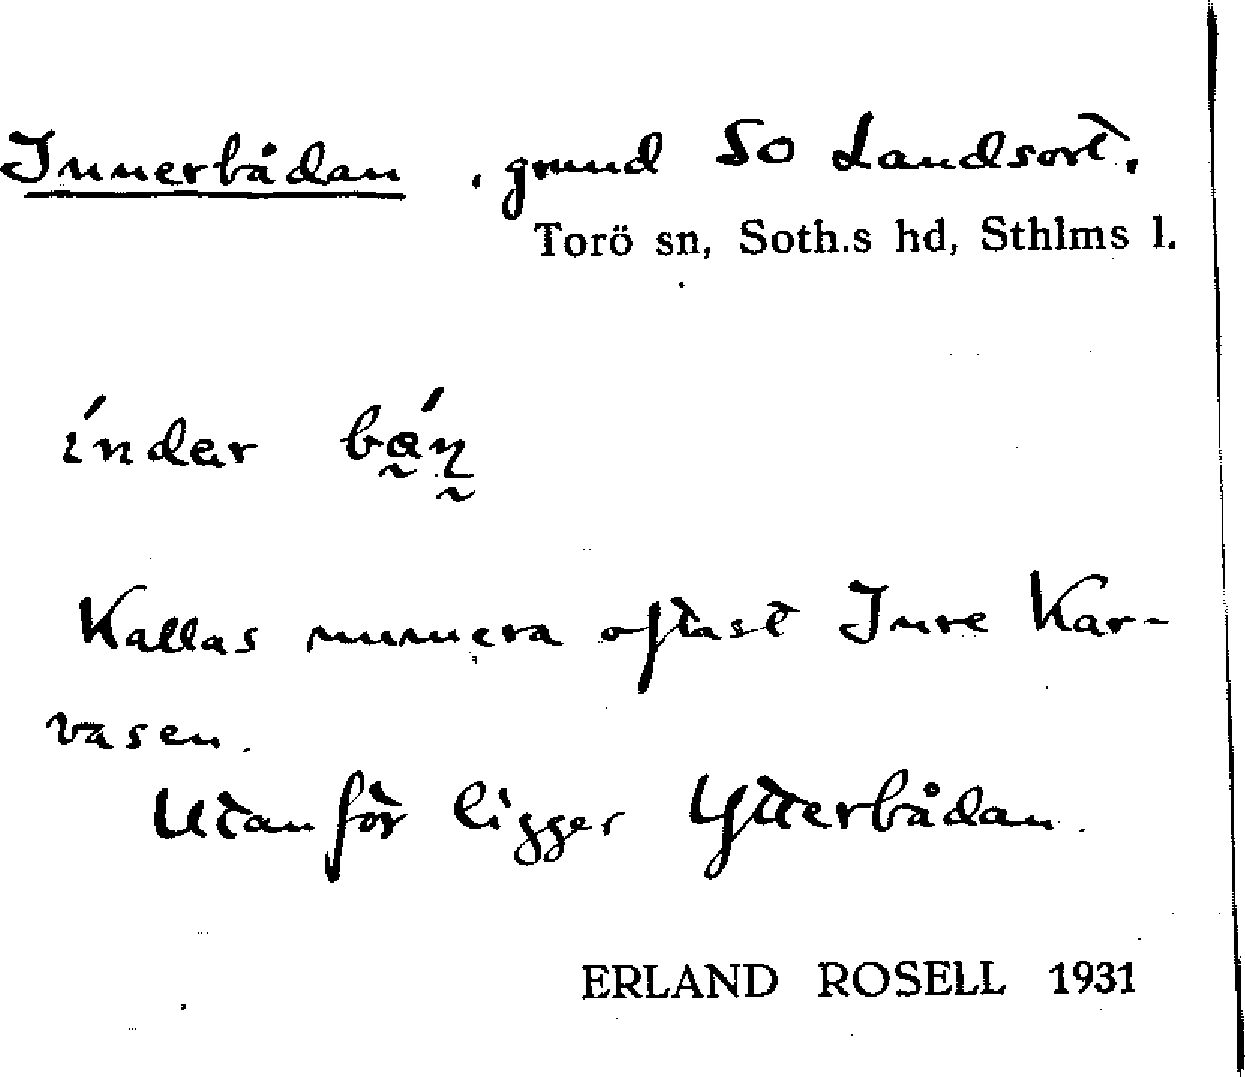 Innerbådan, grund SO Landsort.
Torö sn, Soth.s hd, Sthlms l.
índar
Kallas numera oftast Inre Kar-
vasen.
Utanför ligger Ytterbådan.
ERLAND ROSELL 1931